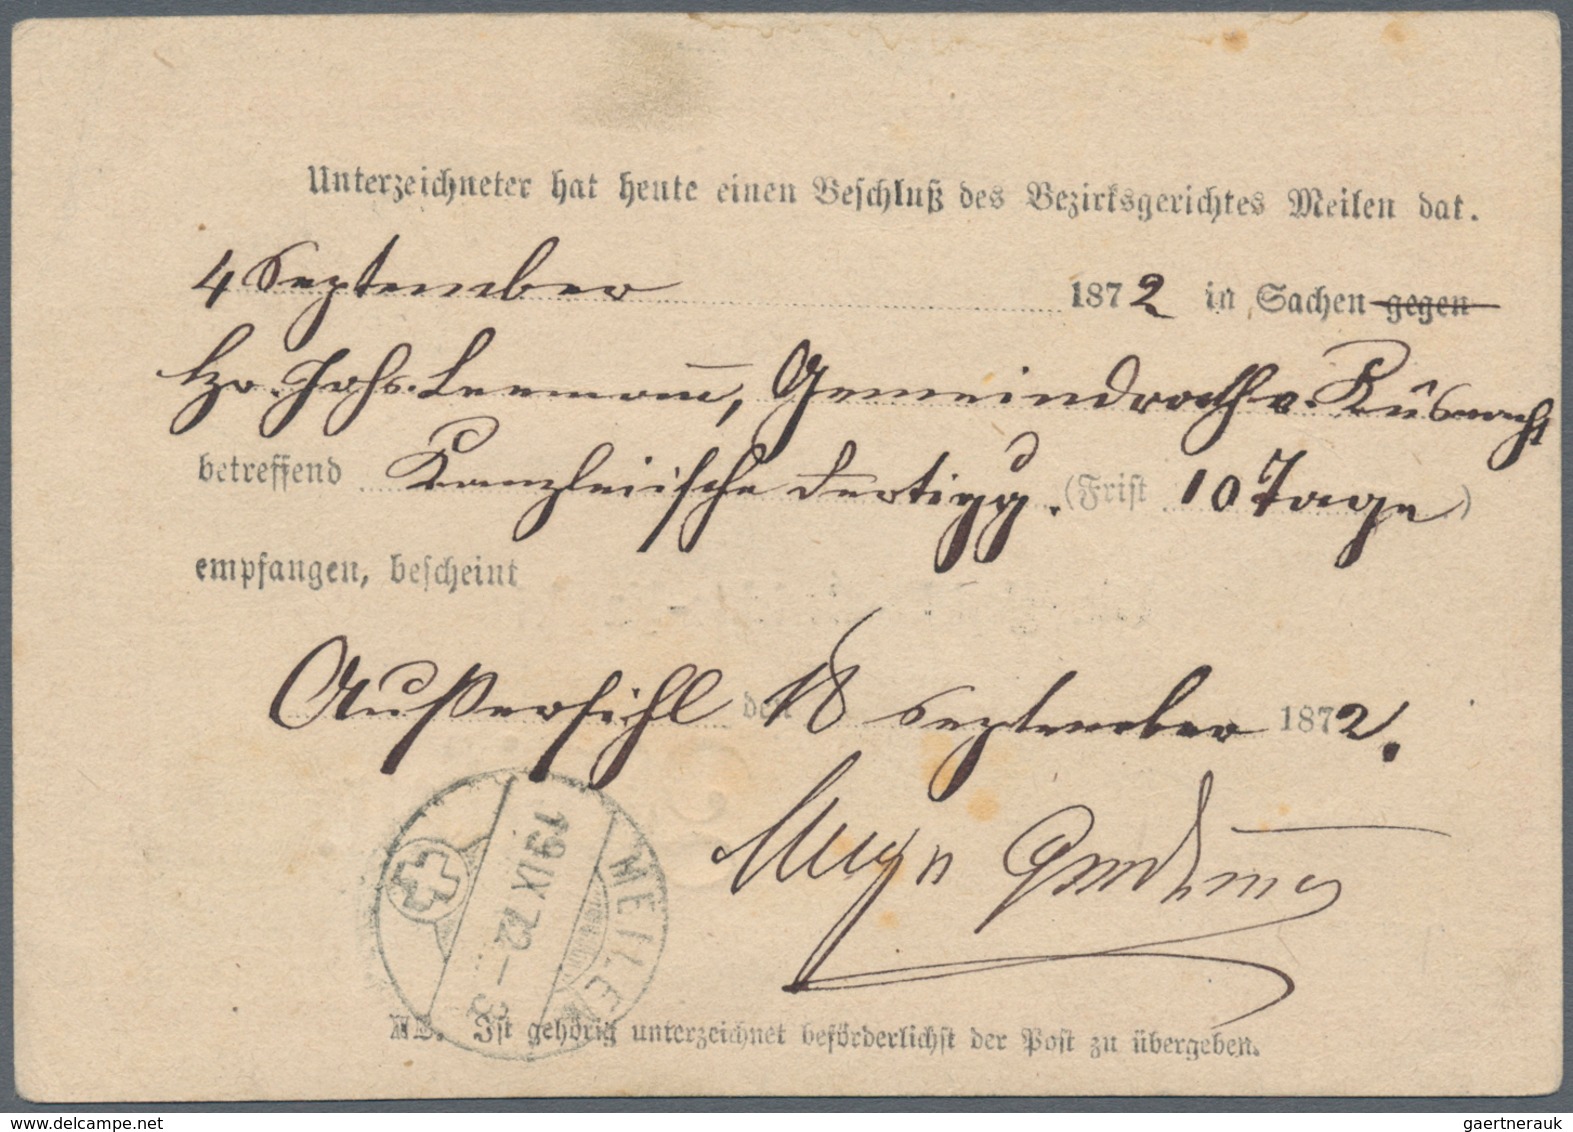 Unterzeichneter hat heute einen Beschluß des Bezirksgerichtes Meilen dat.
4 September 1872 in Sachen gegen
Hr. Johs. Leemañ, Gemeindrath v. Küsnacht
betreffend Kanzleiische Fertigg. (Frist 10 Tage)
empfangen, bescheint
Außersihl den 18 September 1872.
MEILEN
19 IX 72 - 3
NB. Ist gehörig unterzeichnet beförderlichst der Post zu übergeben.
delcampe.net
gaertnerauk